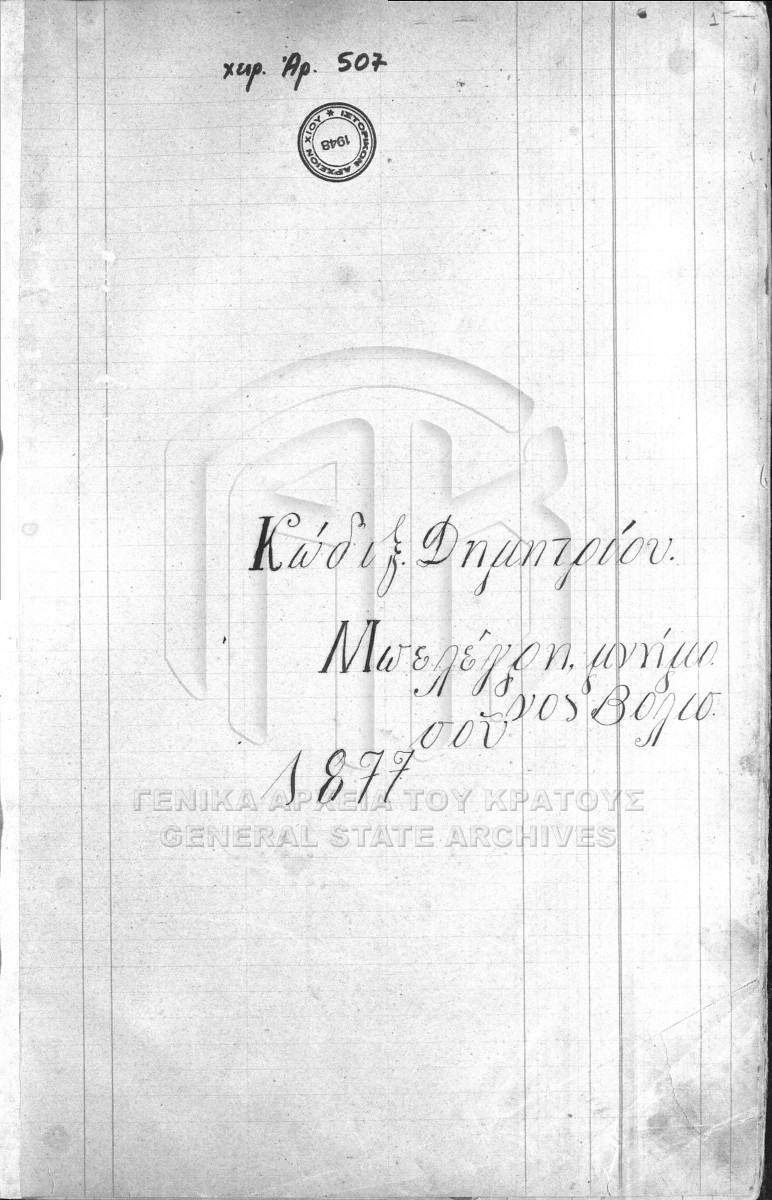 1
χειρ. Ἀρ. 507
ΙΣΤΟΡΙΚΟΝ ΑΡΧΕΙΟΝ ΧΙΟΥ *
1948
Κώδιξ. Δημητρίου.
Μπελέγρη, μνήμο
νος Βολισ
σοῦ
1877
ΓΕΝΙΚΑ ΑΡΧΕΙΑ ΤΟΥ ΚΡΑΤΟΥΣ
GENERAL STATE ARCHIVES